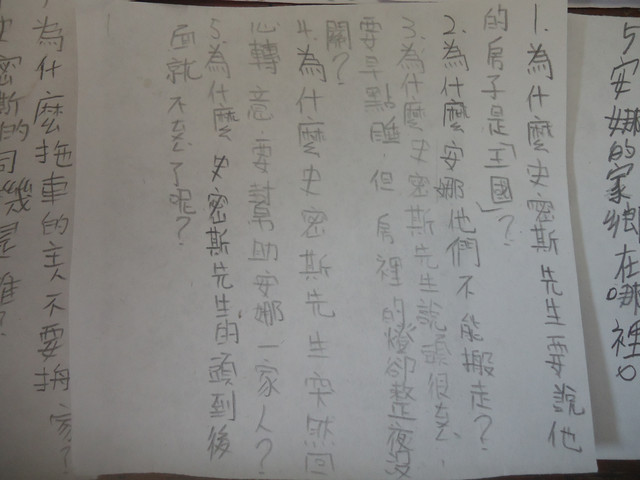 5安娜的家鄉在哪裡。
1.為什麼史密斯先生要說他
的房子是「王國」?
2.為什麼安娜他們不能搬走?
3.為什麼史密斯先生說頭很去,
要早點睡,但房裡的燈卻整夜沒
關?
4.為什麼史密斯先生突然回
心轉意,要幫助安娜一家人?
5.為什麼史密斯先生的頭到後
面就不去了呢?
為什麼拖車的主人不要搬家?
史密斯的司機是誰?